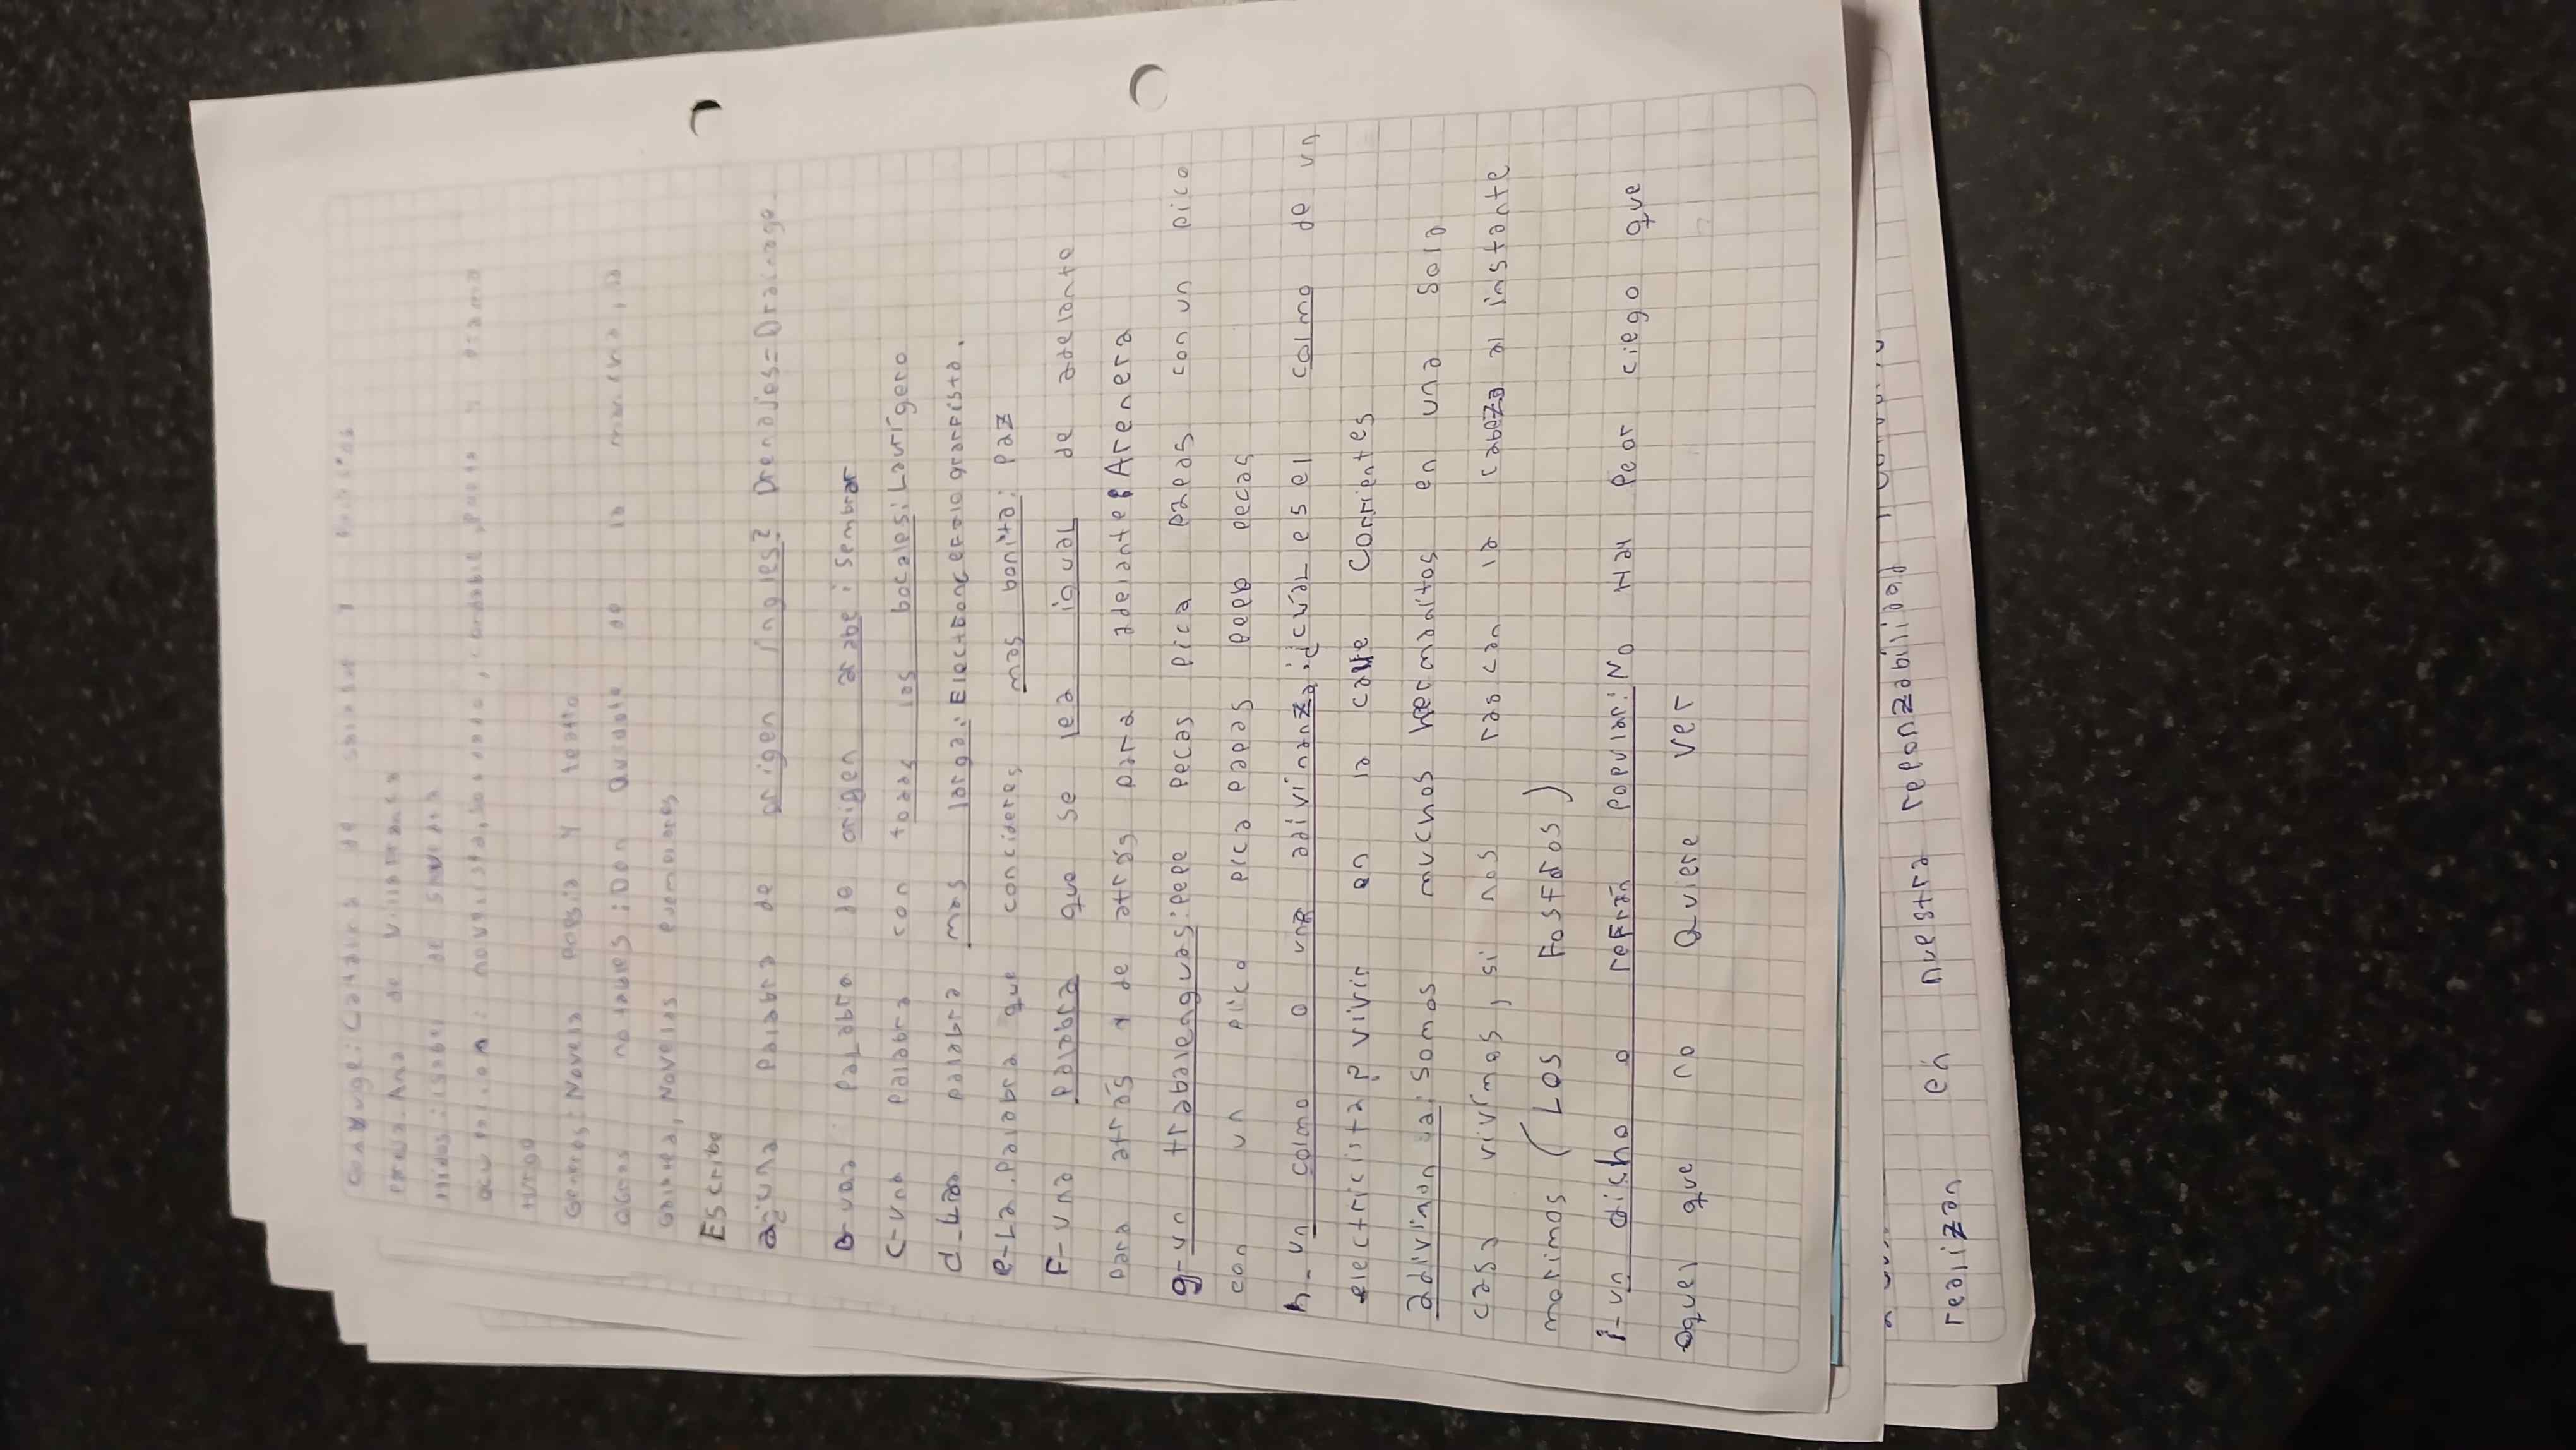 Conyuge: Catalina de salazar y Palacios
Ana de Villafranca
Hijos: isabel de Saavedra
novelista, soldado, contable, poeta y
Generos: Novela poesia y teatro
Obras notables: Don Quixote de la mancha, la
Galatea, Novelas ejemplares
Escribe
a-una palabra de origen ingles? Drenajes=Drainage.
B-una palabra de origen arabe: Sembrar
C-una palabra con todas las bocales: Laurígero
d-La palabra mas larga: Electroencefalografista.
e-La palabra que concideres mas bonita: paz
F-una palabra que se lea igual de adelante
para atrás y de atrás para adelante: Arenera
g-un trabalenguas: pepe pecas pica papas con un pico
con un pico pica papas pepe pecas
h-un colmo o una adivinanza: ¿cuál es el colmo de un
electricista? vivir en la calle Corrientes
adivinanza: somos muchos hermanitos en una sola
casa vivimos, si nos rascan la cabeza al instante
morimos (Los Fosfōros)
i-un dicho o refrán popular: No Hay peor ciego que
aquel que no Quiere ver
nuestra reponzabilidad
realizan en